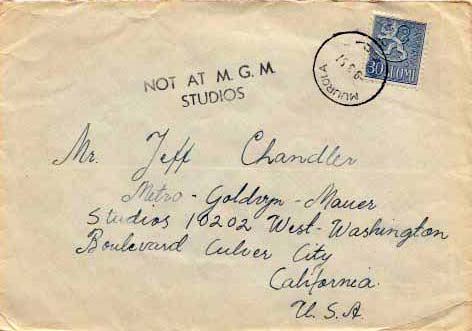 NOT AT M. G. M.
STUDIOS
30 SUOMI
MUROLA
Mr. Jeff Chandler
Metro - Goldvyn - Mauer
Studios 10202 West - Washington
Boulevard Culver City
California.
U. S. A.